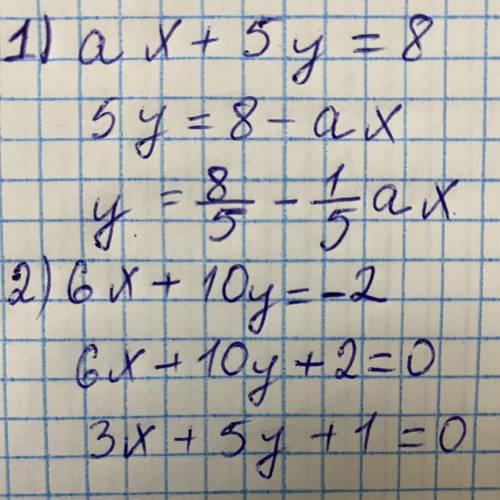 1) ax + 5y = 8
5y = 8 - ax
y = 8/5 - 1/5 ax
2) 6x + 10y = -2
6x + 10y + 2 = 0
3x + 5y + 1 = 0